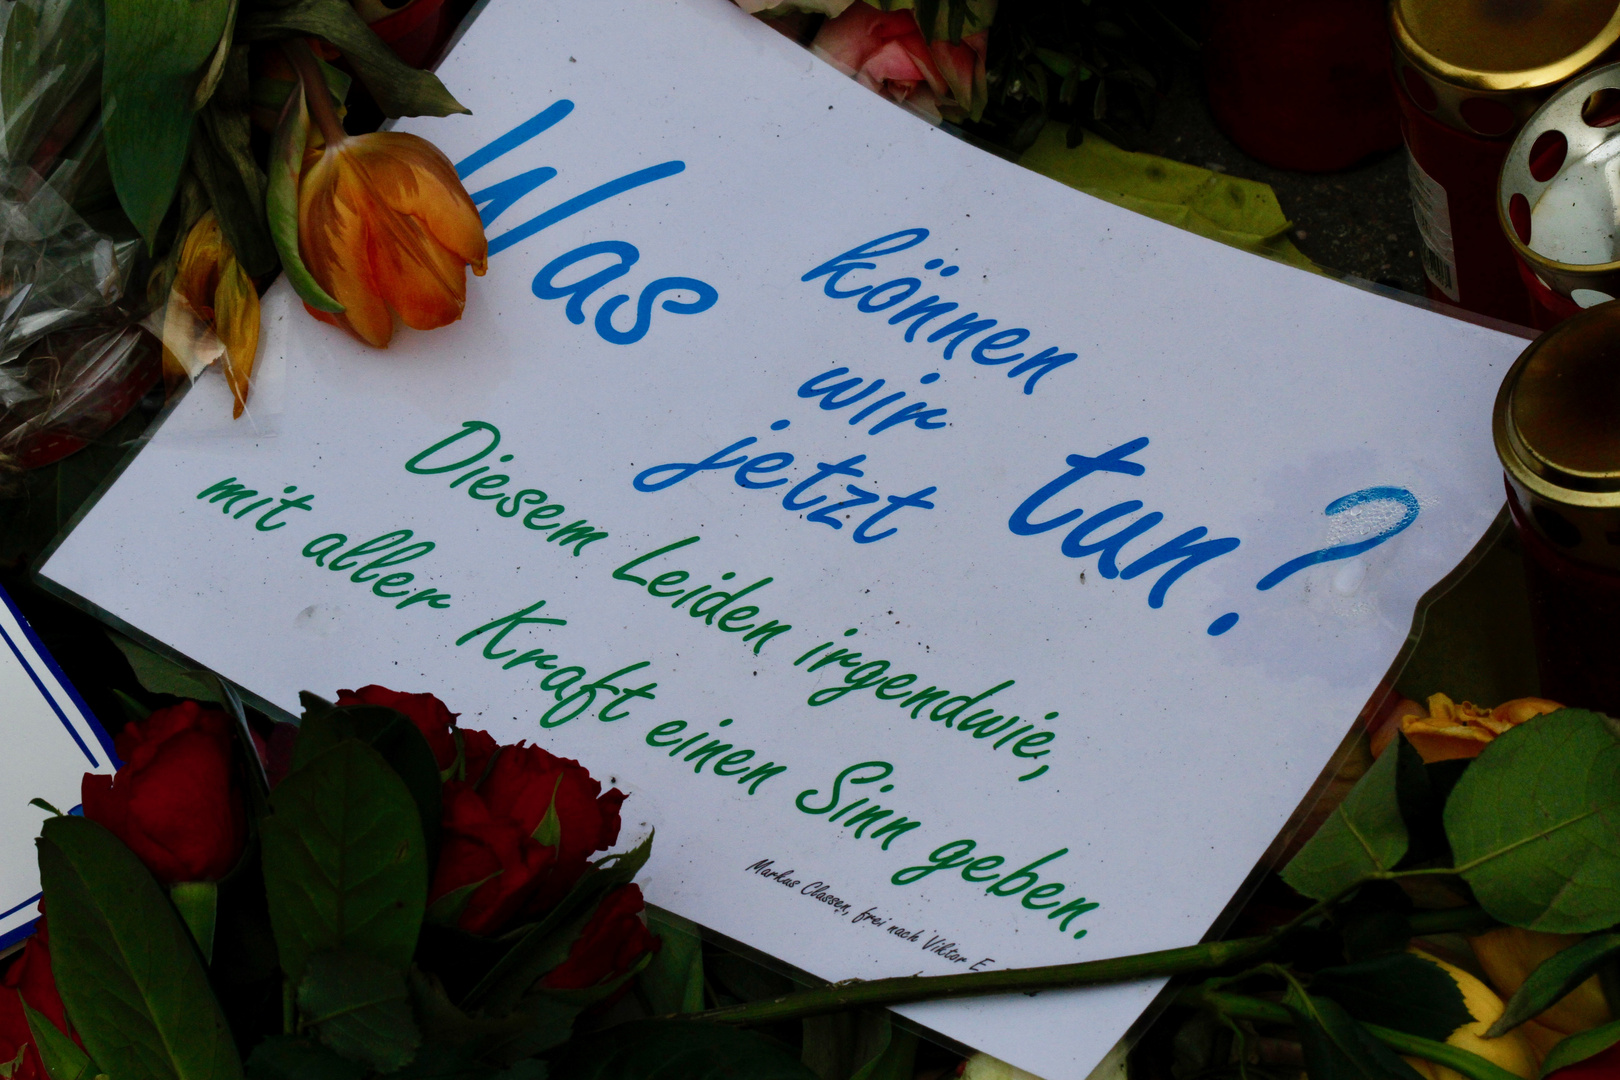 Was
können
wir
jetzt
tun?
Diesem Leiden irgendwie,
mit aller Kraft einen Sinn geben.
Markus Classen, frei nach Viktor E